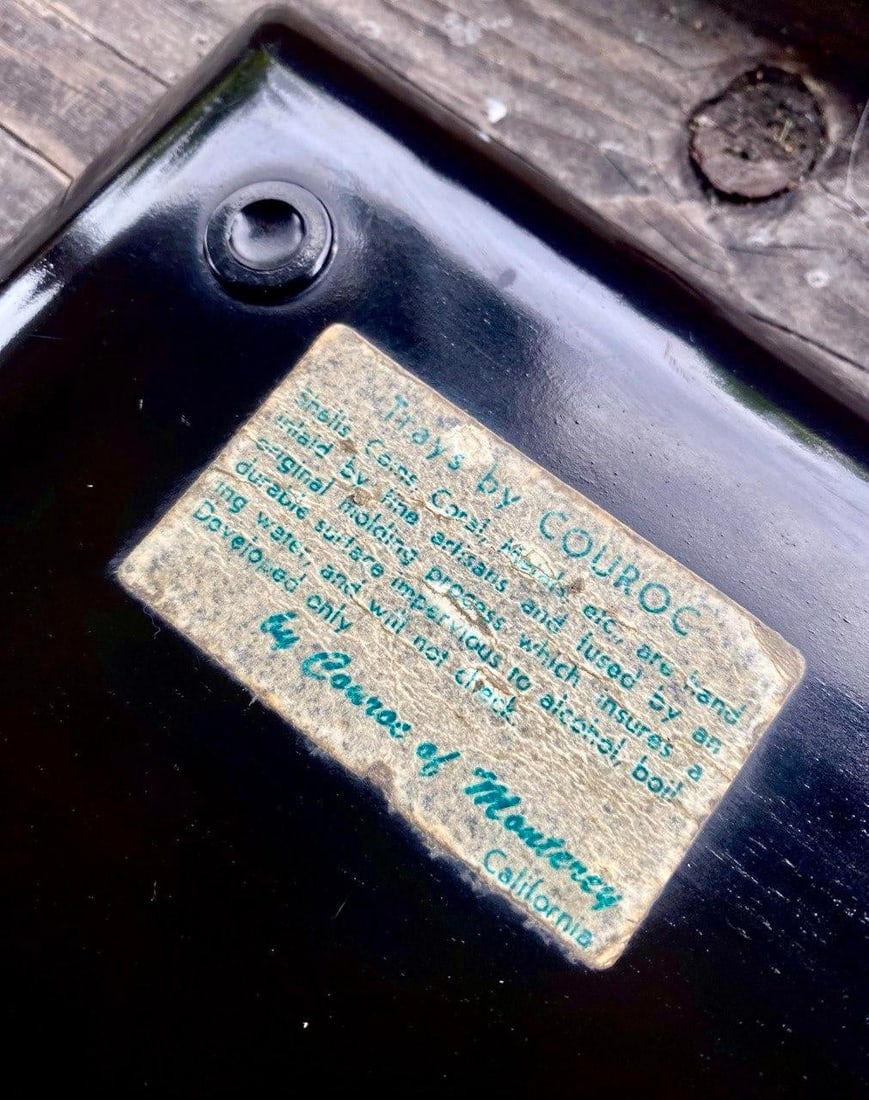 Trays by COUROC
Shells, Coins, Coral, Metals, etc., are hand
inlaid by fine artisans and fused by an
original molding process which insures a
durable surface impervious to alcohol, boil
ing water, and will not check.
Developed only
by Couroc of Monterey
California